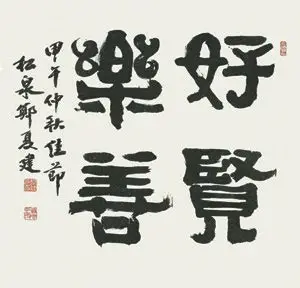 好賢
樂善
甲午仲秋佳節
松泉鄭夏建